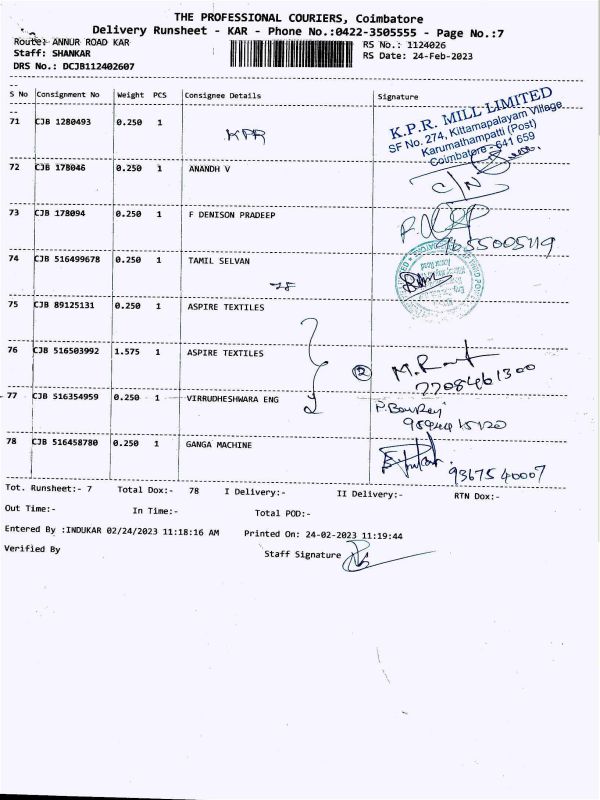 THE PROFESSIONAL COURIERS, Coimbatore
Delivery Runsheet - KAR - Phone No.:0422-3505555 - Page No.:7
Route: ANNUR ROAD KAR
RS No.: 1124026
Staff: SHANKAR
RS Date: 24-Feb-2023
DRS No.: DCJB112402607
S No Consignment No Weight PCS Consignee Details Signature
71 CJB 1280493 0.250 1
KPR
K.P.R. MILL LIMITED
SF No. 274, Kittampalayam Village
Karumathampatti (Post)
Coimbatore - 641 659
72 CJB 178046 0.250 1 ANANDH V
73 CJB 178094 0.250 1 F DENISON PRADEEP
9655005119
74 CJB 516499678 0.250 1 TAMIL SELVAN
75 CJB 89125131 0.250 1 ASPIRE TEXTILES
76 CJB 516503992 1.575 1 ASPIRE TEXTILES
2
7708461300
77 CJB 516354959 0.250 1 VIRRUDHESHWARA ENG
78 CJB 516458780 0.250 1 GANGA MACHINE
9367540007
Tot. Runsheet:- 7 Total Dox:- 78 I Delivery:- II Delivery:- RTN Dox:-
Out Time:- In Time:- Total POD:-
Entered By :INDUKAR 02/24/2023 11:18:16 AM Printed On: 24-02-2023 11:19:44
Verified By Staff Signature